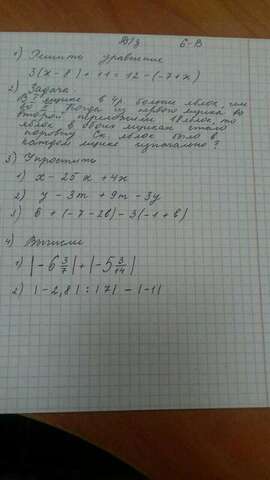 Д/з 6-В
1) Решить уравнение
3(x-8)+11=12-(-7+x)
2) Задача
В I ящике в 4р. больше яблок, чем
во 2. Когда из первого ящика во
второй переложили 18 яблок, то
яблок в обоих ящиках стало
поровну. Ск. яблок было в
каждом ящике изначально?
3) Упростить
1) x - 25x + 4x
2) y - 3m + 9m - 3y
3) 6 + (-7 - 2b) - 3(-1+b)
4) Вычисли
1) |-6 3/7| + |-5 3/14|
2) |-2,8| : |7| - |-1|